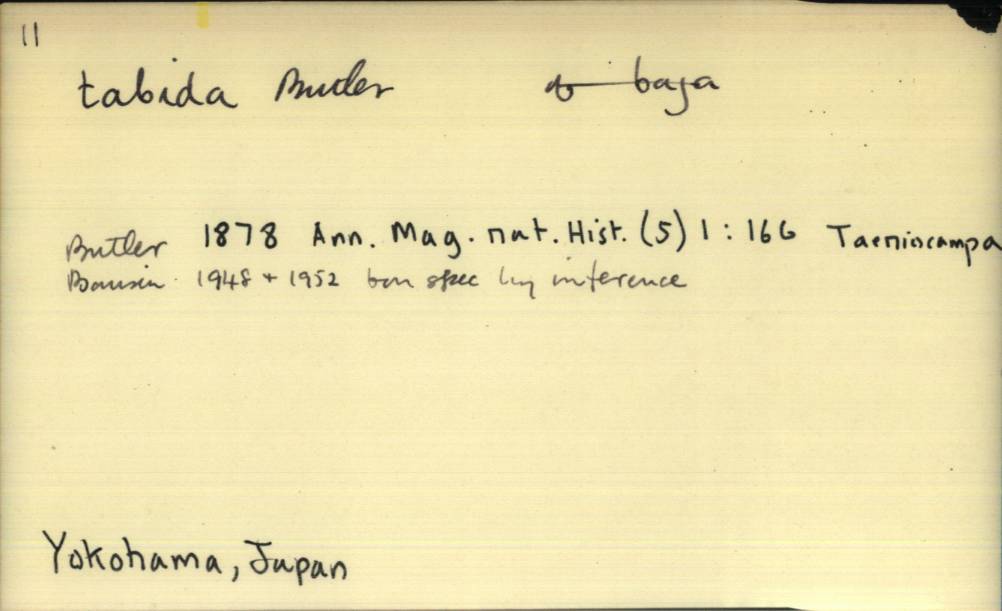 11
tabida Butler baja
Butler 1878 Ann. Mag. nat. Hist. (5) 1 : 166 Taeniocampa
Boursin 1948 + 1952 bon spec by inference
Yokohama, Japan